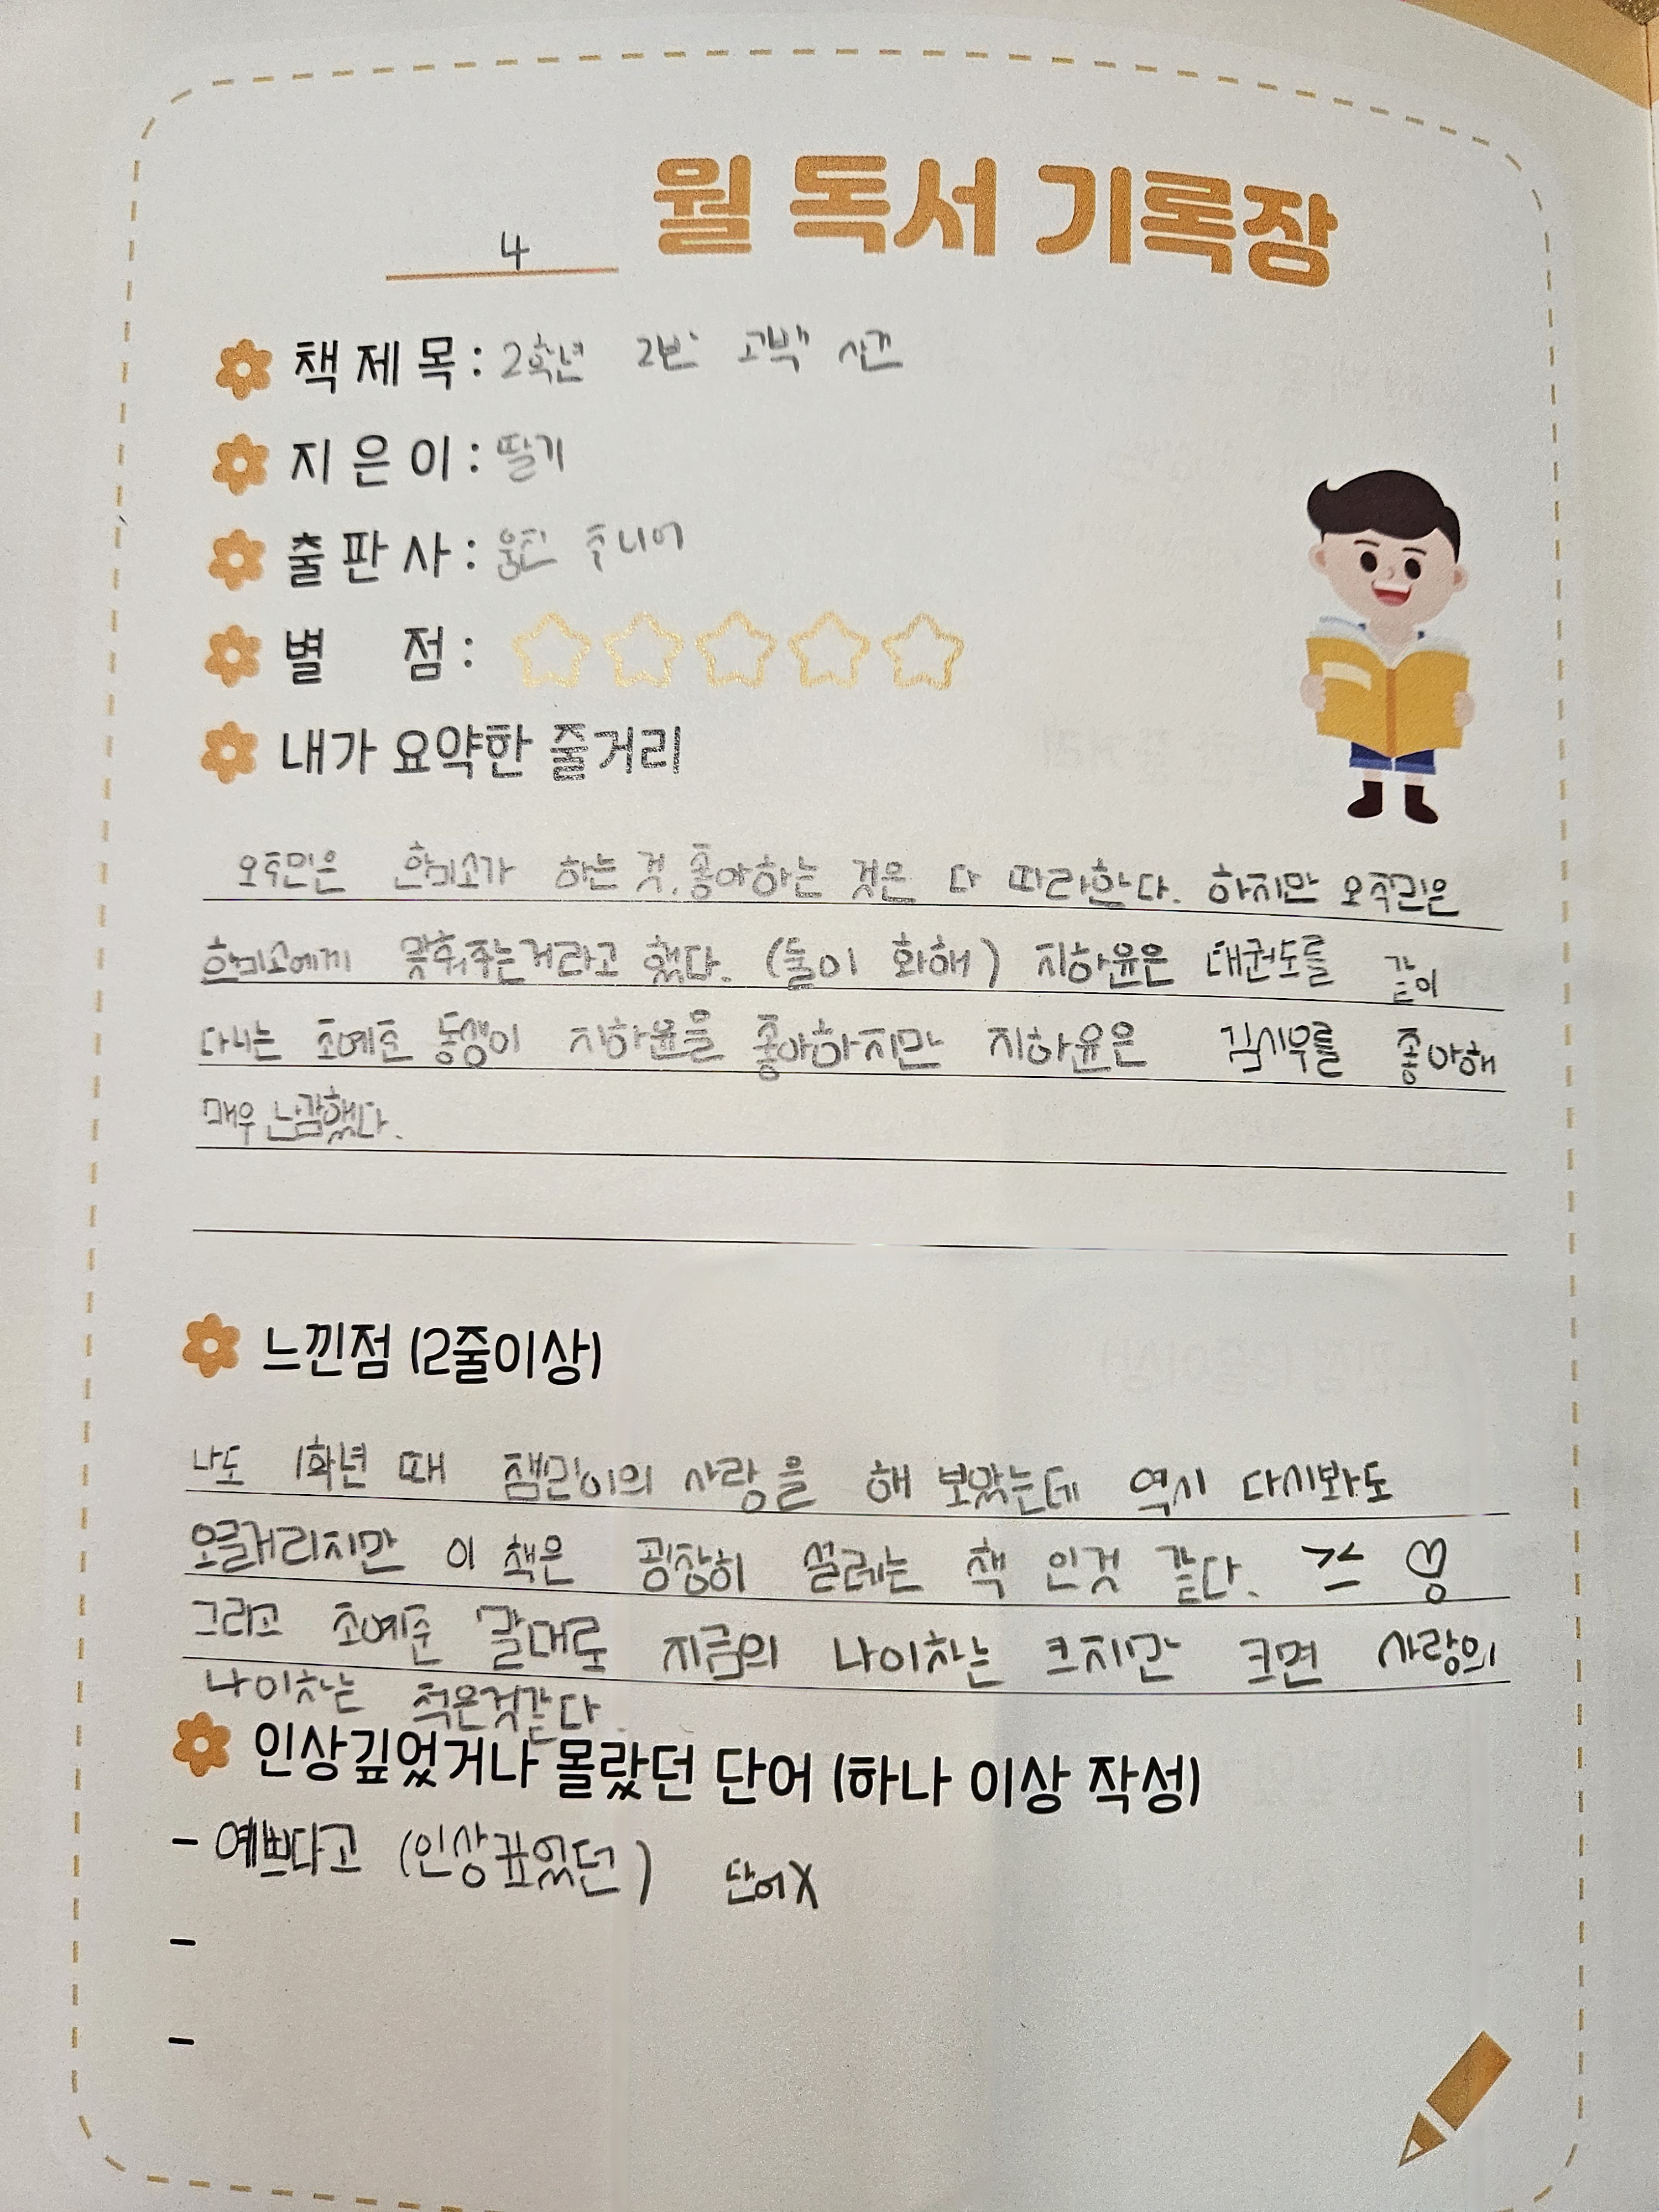 4 월 독서 기록장
책 제 목 : 2학년 2반 고백 사건
지 은 이 : 딸기
출 판 사 : 웅진 주니어
별 점 :
내가 요약한 줄거리
오주민은 한미소가 하는 것, 좋아하는 것은 다 따라한다. 하지만 오주민은
한미소에게 맞춰주는거라고 했다. (둘이 화해) 지하윤은 태권도를 같이
다니는 초예준 동생이 지하윤을 좋아하지만 지하윤은 김시우를 좋아해
매우 난감했다.
느낀점 (2줄이상)
나도 1학년 때 잼민이의 사랑을 해 보았는데 역시 다시봐도
오글거리지만 이 책은 굉장히 설레는 책 인것 같다. >< ♡
그리고 초예준 말대로 지금의 나이차는 크지만 크면 사랑의
나이차는 적은것같다.
인상깊었거나 몰랐던 단어 (하나 이상 작성)
- 예쁘다고 (인상 던) 단어X
-
-